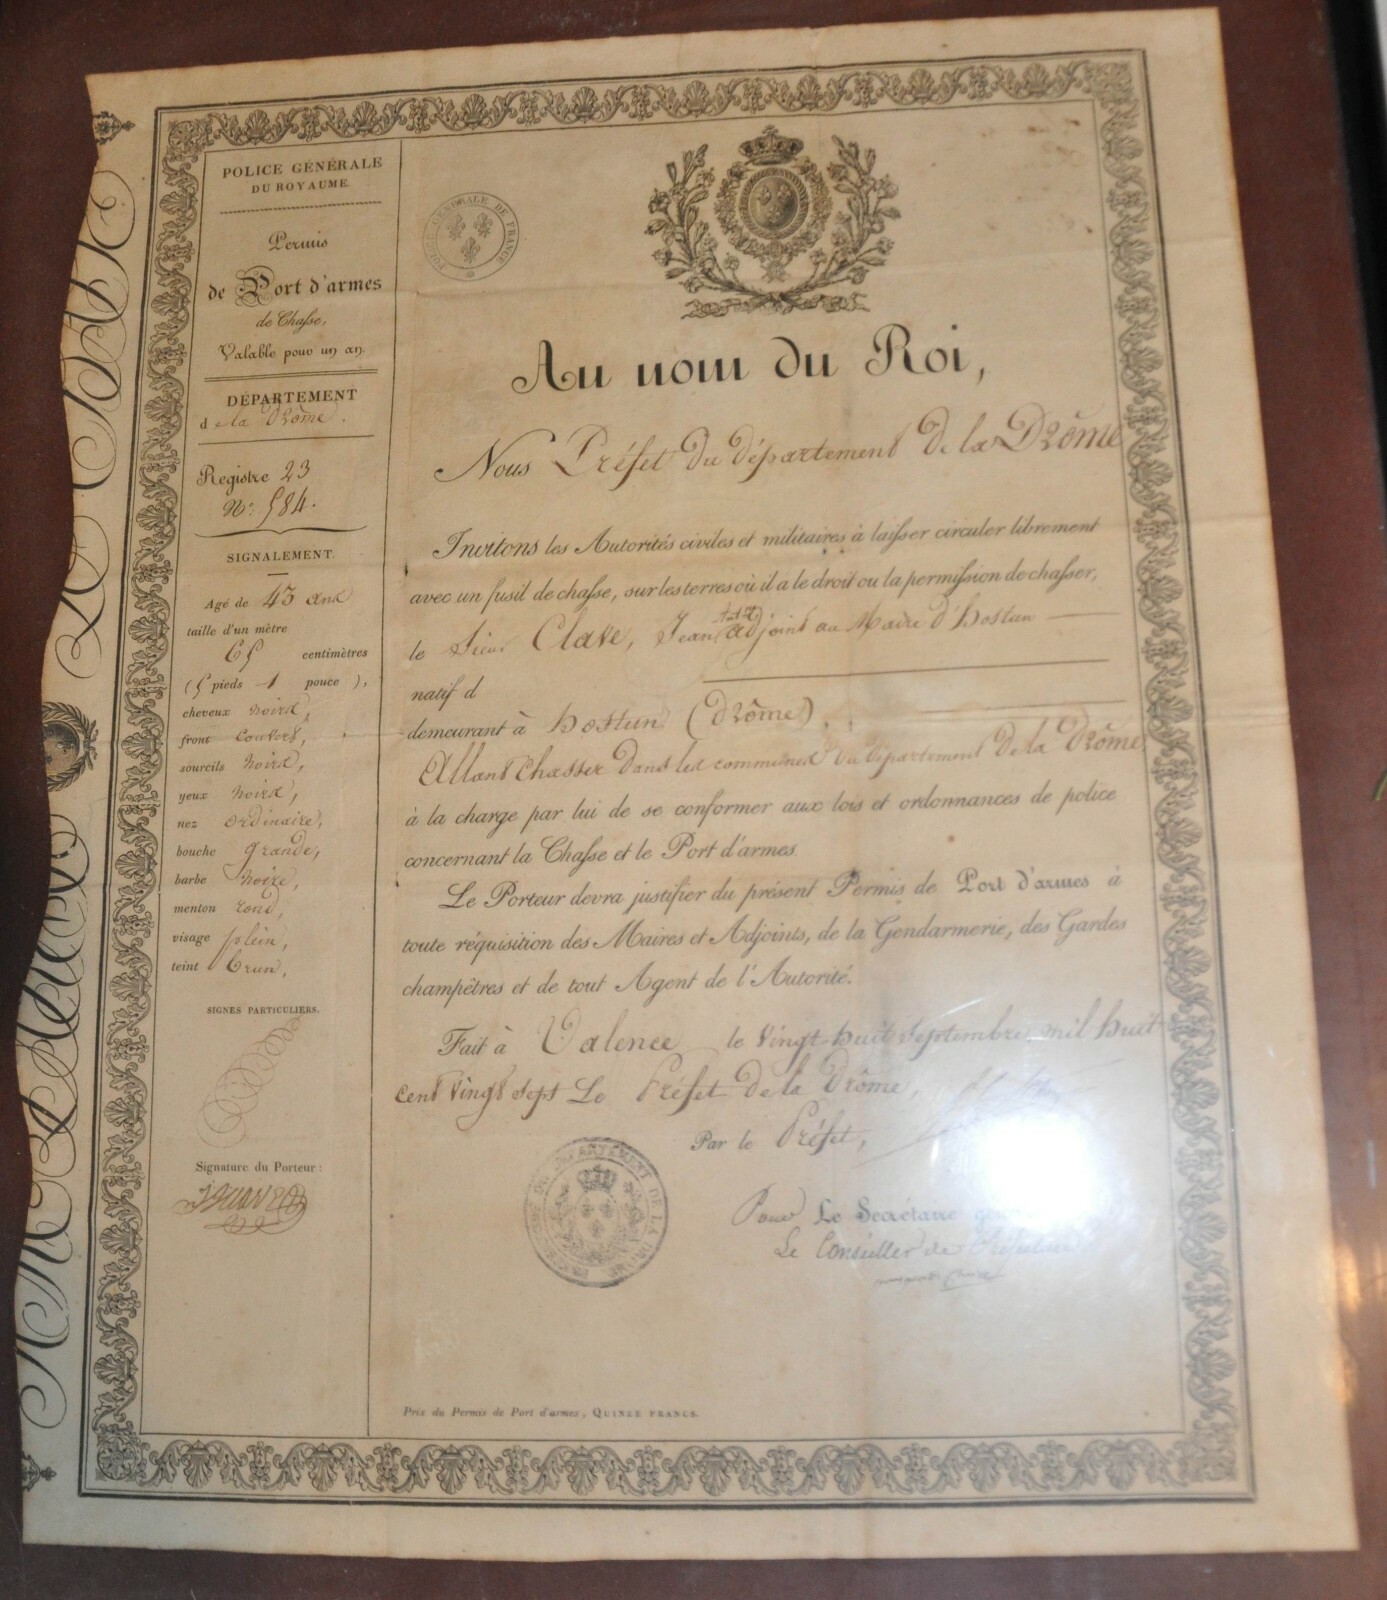 POLICE GÉNÉRALE
DU ROYAUME.
Permis
de Port d'armes
de Chasse,
Valable pour un an.
DÉPARTEMENT
de la Drôme.
Registre 23
N.º 584.
SIGNALEMENT.
Agé de 43 ans
taille d'un mètre
65 centimètres
(5 pieds 1 pouce),
cheveux noirs,
front couvert,
sourcils noirs,
yeux noirs,
nez ordinaire,
bouche grande,
barbe noire,
menton rond,
visage plein,
teint brun,
SIGNES PARTICULIERS.
Signature du Porteur:
POLICE GÉNÉRALE DE FRANCE
Au nom du Roi,
Nous Préfet du département de la Drôme
Invitons les Autorités civiles et militaires à laisser circuler librement
avec un fusil de chasse, sur les terres où il a le droit ou la permission de chasser,
le Sieur Clave, Jean adjoint au Maire d'hostun
natif d
demeurant à hostun (Drôme).
Allant chasser dans les communes du département de la Drôme
à la charge par lui de se conformer aux lois et ordonnances de police
concernant la Chasse et le Port d'armes.
Le Porteur devra justifier du présent Permis de Port d'armes à
toute réquisition des Maires et Adjoints, de la Gendarmerie, des Gardes
champêtres et de tout Agent de l'Autorité.
Fait à Valence le vingt huit septembre mil huit
cent vingt sept Le Préfet de la Drôme,
Par le Préfet,
Pour Le Secrétaire
Le Conseiller de Préfecture
DÉPARTEMENT DE LA DROME
Prix du Permis de Port d'armes, QUINZE FRANCS.